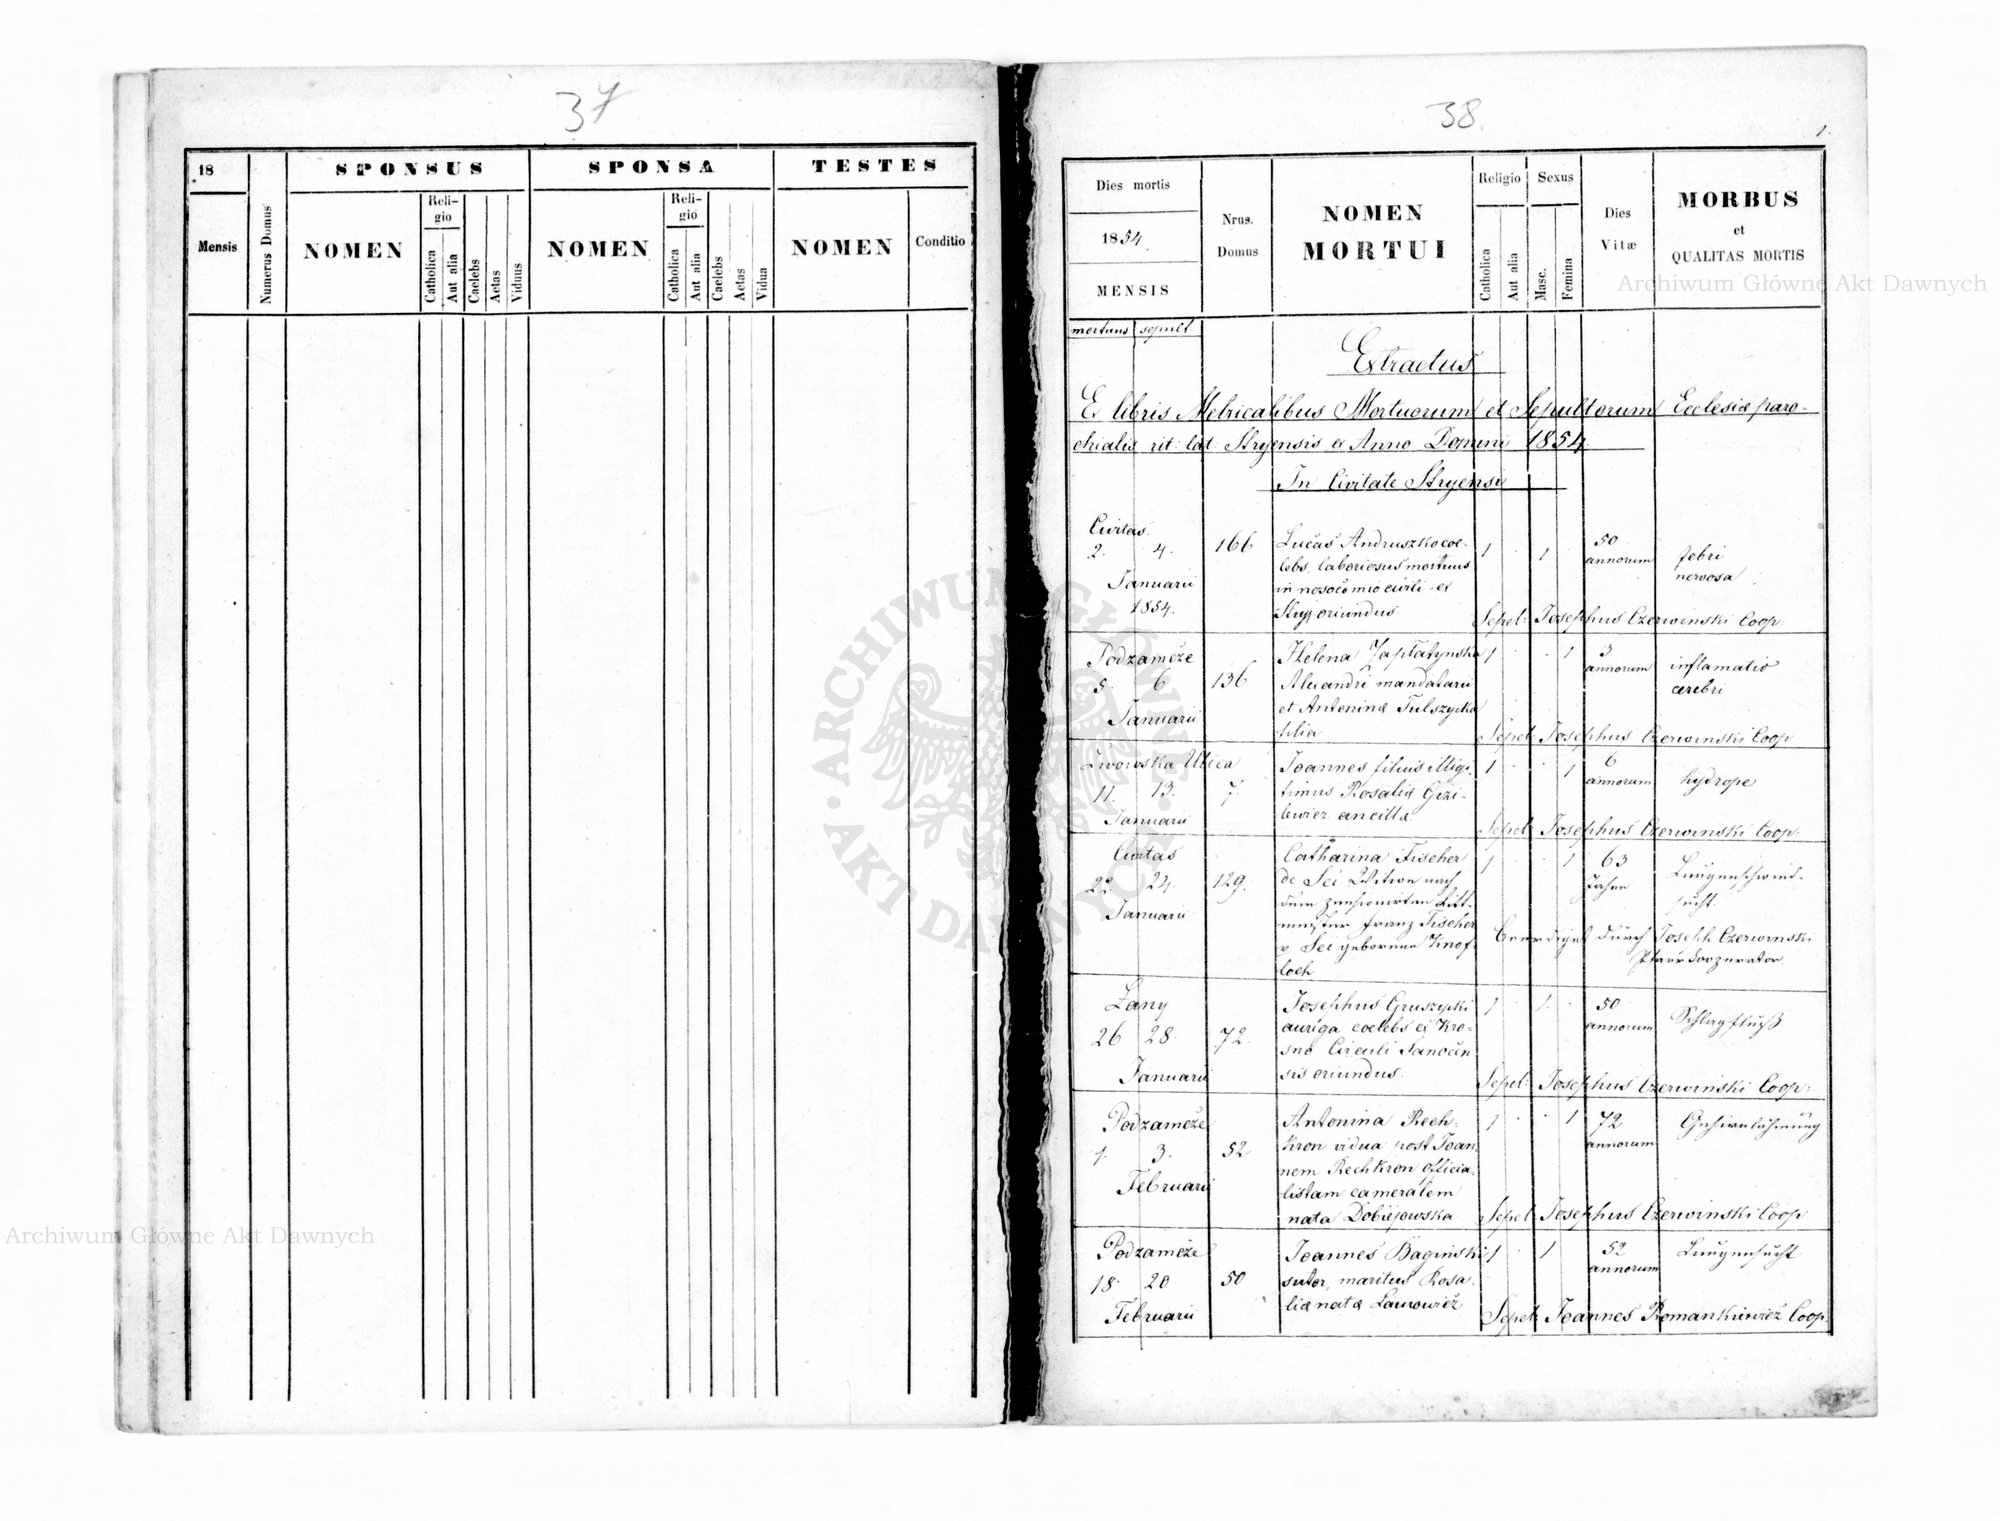 37
18
SPONSUS
SPONSA
TESTES
Mensis
Numerus Domus
NOMEN
Reli-
gio
Catholica
Aut alia
Caelebs
Aetas
Viduus
NOMEN
Reli-
gio
Catholica
Aut alia
Caelebs
Aetas
Vidua
NOMEN
Conditio
38
1.
Dies mortis
1854
MENSIS
Nrus.
Domus
NOMEN
MORTUI
Religio
Catholica
Aut alia
Sexus
Masc.
Femina
Dies
Vitæ
MORBUS
et
QUALITAS MORTIS
mortuus sepult
Extractus
E libris Metricalibus Mortuorum et Sepultorum Ecclesiæ paro-
chialis rit: lat: Stryensis ex Anno Domini 1854.
In Civitate Stryensi
Civitas
2. 4.
Januarii
1854.
166
Lucas Andruszko coe-
lebs, laboriosus mortuus
in nosocomio civili - ex
Stryj oriundus
1 1
50
annorum
febri
nervosa
Sepel: Josephus Czerwinski Coop.
Podzamcze
5. 6
Januarii
136
Helena Zapłatynska
Alexandri mandatarii
et Antoninæ Tulszycka
filia
1 1
3
annorum
inflamatio
cerebri
Sepel: Josephus Czerwinski Coop
Lwowska Ulica
11. 13.
Januarii
7.
Joannes filius illigi-
timus Rosaliæ Gizi-
lewicz ancillæ
1 1
6
annorum
hydrope
Sepel: Josephus Czerwinski Coop.
Civitas
22. 24.
Januarii
129.
Catharina Fischer
de See Witwe nach
dem pensionirten Ritt-
meister Franz Fischer
v See geborene Knof-
loch
1. 1
63
Jahre
Lungenschwind-
sucht
Beerdiget durch Joseph Czerwinski
Pfarr Cooperator.
Łany
26 28.
Januarii
72.
Josephus Gruszecki
auriga coelebs ex Kro-
sno Circuli Sanocen
sis oriundus.
1 1.
50
annorum
Schlagfluß
Sepel: Josephus Czerwinski Coop:
Podzamcze
1. 3.
Februarii
52
Antonina Rech-
kron vidua post Joan-
nem Rechkron officia-
listam cameralem
nata Dobiejowska
1 1
72
annorum
Gehirnlähmung
Sepel: Josephus Czerwinski Coop
Podzamcze
18. 20
Februarii
50
Joannes Bagiński
sutor, maritus Rosa-
liæ natæ
1 1
52
annorum
Lungensucht
Sepel: Joannes Romankiewicz Coop.
Archiwum Główne Akt Dawnych
Archiwum Główne Akt Dawnych
ARCHIWUM GŁÓWNE
AKT DAWNYCH